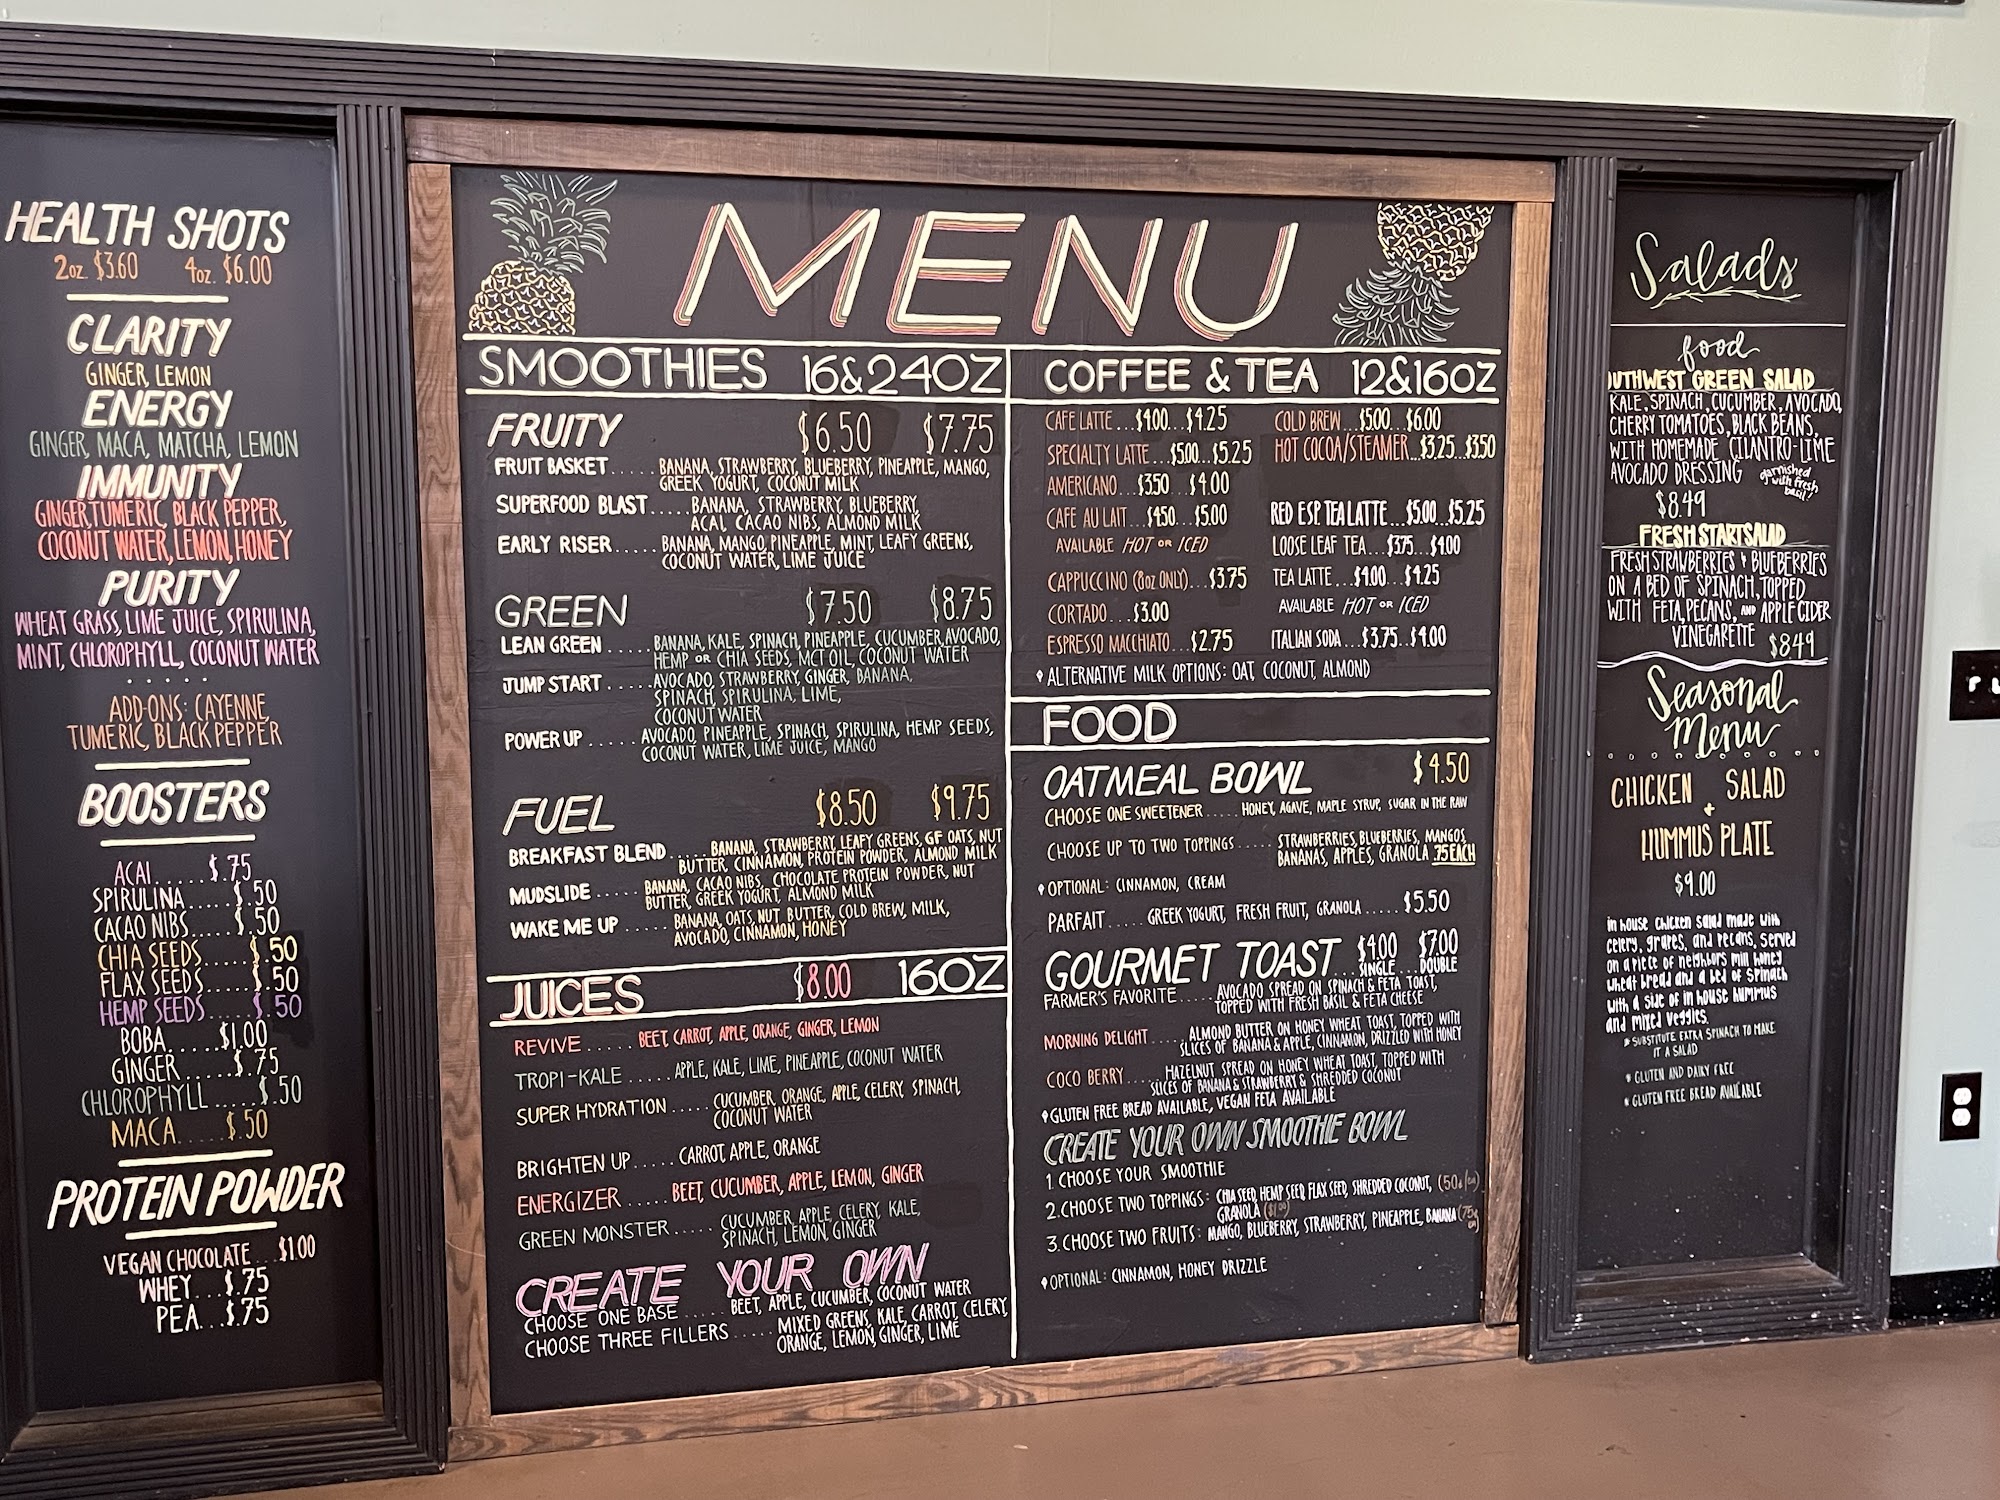 HEALTH SHOTS
2oz. $3.60 4oz. $6.00
CLARITY
GINGER, LEMON
ENERGY
GINGER, MACA, MATCHA, LEMON
IMMUNITY
GINGER, TUMERIC, BLACK PEPPER,
COCONUT WATER, LEMON, HONEY
PURITY
WHEAT GRASS, LIME JUICE, SPIRULINA,
MINT, CHLOROPHYLL, COCONUT WATER
.....
ADD-ONS: CAYENNE,
TUMERIC, BLACK PEPPER
BOOSTERS
ACAI.....$.75
SPIRULINA.....$.50
CACAO NIBS.....$.50
CHIA SEEDS.....$.50
FLAX SEEDS.....$.50
HEMP SEEDS.....$.50
BOBA.....$1.00
GINGER.....$.75
CHLOROPHYLL.....$.50
MACA.....$.50
PROTEIN POWDER
VEGAN CHOCOLATE...$1.00
WHEY...$.75
PEA...$.75
MENU
SMOOTHIES 16&24OZ
FRUITY $6.50 $7.75
FRUIT BASKET.....BANANA, STRAWBERRY, BLUEBERRY, PINEAPPLE, MANGO,
GREEK YOGURT, COCONUT MILK
SUPERFOOD BLAST.....BANANA, STRAWBERRY, BLUEBERRY,
ACAI, CACAO NIBS, ALMOND MILK
EARLY RISER.....BANANA, MANGO, PINEAPPLE, MINT, LEAFY GREENS,
COCONUT WATER, LIME JUICE
GREEN $7.50 $8.75
LEAN GREEN.....BANANA, KALE, SPINACH, PINEAPPLE, CUCUMBER, AVOCADO,
HEMP OR CHIA SEEDS, MCT OIL, COCONUT WATER
JUMP START.....AVOCADO, STRAWBERRY, GINGER, BANANA,
SPINACH, SPIRULINA, LIME,
COCONUT WATER
POWER UP.....AVOCADO, PINEAPPLE, SPINACH, SPIRULINA, HEMP SEEDS,
COCONUT WATER, LIME JUICE, MANGO
FUEL $8.50 $9.75
BREAKFAST BLEND.....BANANA, STRAWBERRY, LEAFY GREENS, GF OATS, NUT
BUTTER, CINNAMON, PROTEIN POWDER, ALMOND MILK
MUDSLIDE.....BANANA, CACAO NIBS, CHOCOLATE PROTEIN POWDER, NUT
BUTTER, GREEK YOGURT, ALMOND MILK
WAKE ME UP.....BANANA, OATS, NUT BUTTER, COLD BREW, MILK,
AVOCADO, CINNAMON, HONEY
JUICES $8.00 16OZ
REVIVE.....BEET, CARROT, APPLE, ORANGE, GINGER, LEMON
TROPI-KALE.....APPLE, KALE, LIME, PINEAPPLE, COCONUT WATER
SUPER HYDRATION.....CUCUMBER, ORANGE, APPLE, CELERY, SPINACH,
COCONUT WATER
BRIGHTEN UP.....CARROT, APPLE, ORANGE
ENERGIZER.....BEET, CUCUMBER, APPLE, LEMON, GINGER
GREEN MONSTER.....CUCUMBER, APPLE, CELERY, KALE,
SPINACH, LEMON, GINGER
CREATE YOUR OWN
CHOOSE ONE BASE.....BEET, APPLE, CUCUMBER, COCONUT WATER
CHOOSE THREE FILLERS.....MIXED GREENS, KALE, CARROT, CELERY,
ORANGE, LEMON, GINGER, LIME
COFFEE & TEA 12&16OZ
CAFE LATTE...$4.00...$4.25
SPECIALTY LATTE...$5.00...$5.25
AMERICANO...$3.50...$4.00
CAFE AU LAIT...$4.50...$5.00
AVAILABLE HOT OR ICED
CAPPUCCINO (8oz ONLY)...$3.75
CORTADO...$3.00
ESPRESSO MACCHIATO...$2.75
COLD BREW...$5.00...$6.00
HOT COCOA/STEAMER...$3.25...$3.50
RED ESP. TEA LATTE...$5.00...$5.25
LOOSE LEAF TEA...$3.75...$4.00
TEA LATTE...$4.00...$4.25
AVAILABLE HOT OR ICED
ITALIAN SODA...$3.75...$4.00
ALTERNATIVE MILK OPTIONS: OAT, COCONUT, ALMOND
FOOD
OATMEAL BOWL $4.50
CHOOSE ONE SWEETENER.....HONEY, AGAVE, MAPLE SYRUP, SUGAR IN THE RAW
CHOOSE UP TO TWO TOPPINGS.....STRAWBERRIES, BLUEBERRIES, MANGOS,
BANANAS, APPLES, GRANOLA .75 EACH
OPTIONAL: CINNAMON, CREAM
PARFAIT.....GREEK YOGURT, FRESH FRUIT, GRANOLA.....$5.50
GOURMET TOAST $4.00 $7.00
SINGLE...DOUBLE
FARMER'S FAVORITE.....AVOCADO SPREAD ON SPINACH & FETA TOAST,
TOPPED WITH FRESH BASIL & FETA CHEESE
MORNING DELIGHT.....ALMOND BUTTER ON HONEY WHEAT TOAST, TOPPED WITH
SLICES OF BANANA & APPLE, CINNAMON, DRIZZLED WITH HONEY
COCO BERRY.....HAZELNUT SPREAD ON HONEY WHEAT TOAST, TOPPED WITH
SLICES OF BANANA & STRAWBERRY & SHREDDED COCONUT
GLUTEN FREE BREAD AVAILABLE, VEGAN FETA AVAILABLE
CREATE YOUR OWN SMOOTHIE BOWL
1. CHOOSE YOUR SMOOTHIE
2. CHOOSE TWO TOPPINGS: CHIA SEED, HEMP SEED, FLAX SEED, SHREDDED COCONUT,
GRANOLA ($1.00)
3. CHOOSE TWO FRUITS: MANGO, BLUEBERRY, STRAWBERRY, PINEAPPLE, BANANA
OPTIONAL: CINNAMON, HONEY DRIZZLE
Salads
food
UTHWEST GREEN SALAD
KALE, SPINACH, CUCUMBER, AVOCADO,
CHERRY TOMATOES, BLACK BEANS,
WITH HOMEMADE CILANTRO-LIME
AVOCADO DRESSING garnished with fresh basil
$8.49
FRESH START SALAD
FRESH STRAWBERRIES + BLUEBERRIES
ON A BED OF SPINACH, TOPPED
WITH FETA, PECANS, AND APPLE CIDER
VINEGARETTE $8.49
Seasonal
Menu
CHICKEN SALAD
+
HUMMUS PLATE
$9.00
in house chicken salad made with
celery, grapes, and pecans, served
on a piece of neighbors mill honey
wheat bread and a bed of spinach
with a side of in house hummus
and mixed veggies.
* SUBSTITUTE EXTRA SPINACH TO MAKE
IT A SALAD
* GLUTEN AND DAIRY FREE
* GLUTEN FREE BREAD AVAILABLE